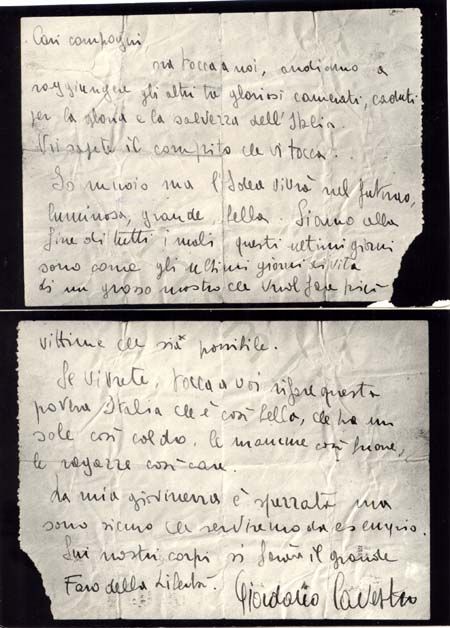 Cari compagni
ora tocca a noi, andiamo a
raggiungere gli altri tre gloriosi camerati, caduti
per la gloria e la salvezza dell'Italia.
Voi sapete il compito che vi tocca.
Io muoio ma l'Idea vivrà nel futuro,
luminosa, grande, bella. Siamo alla
fine di tutti i mali, questi ultimi giorni
sono come gli ultimi giorni di vita
di un grosso mostro che vuol fare più
vittime che sia possibile.
Se vivrete, tocca a voi rifare questa
povera Italia che è così bella, che ha un
sole così caldo, le mamme così buone,
le ragazze così care.
La mia giovinezza è spezzata ma
sono sicuro che serviremo da esempio.
Sui nostri corpi si farà il grande
Faro della Libertà. Giordano Cavestro